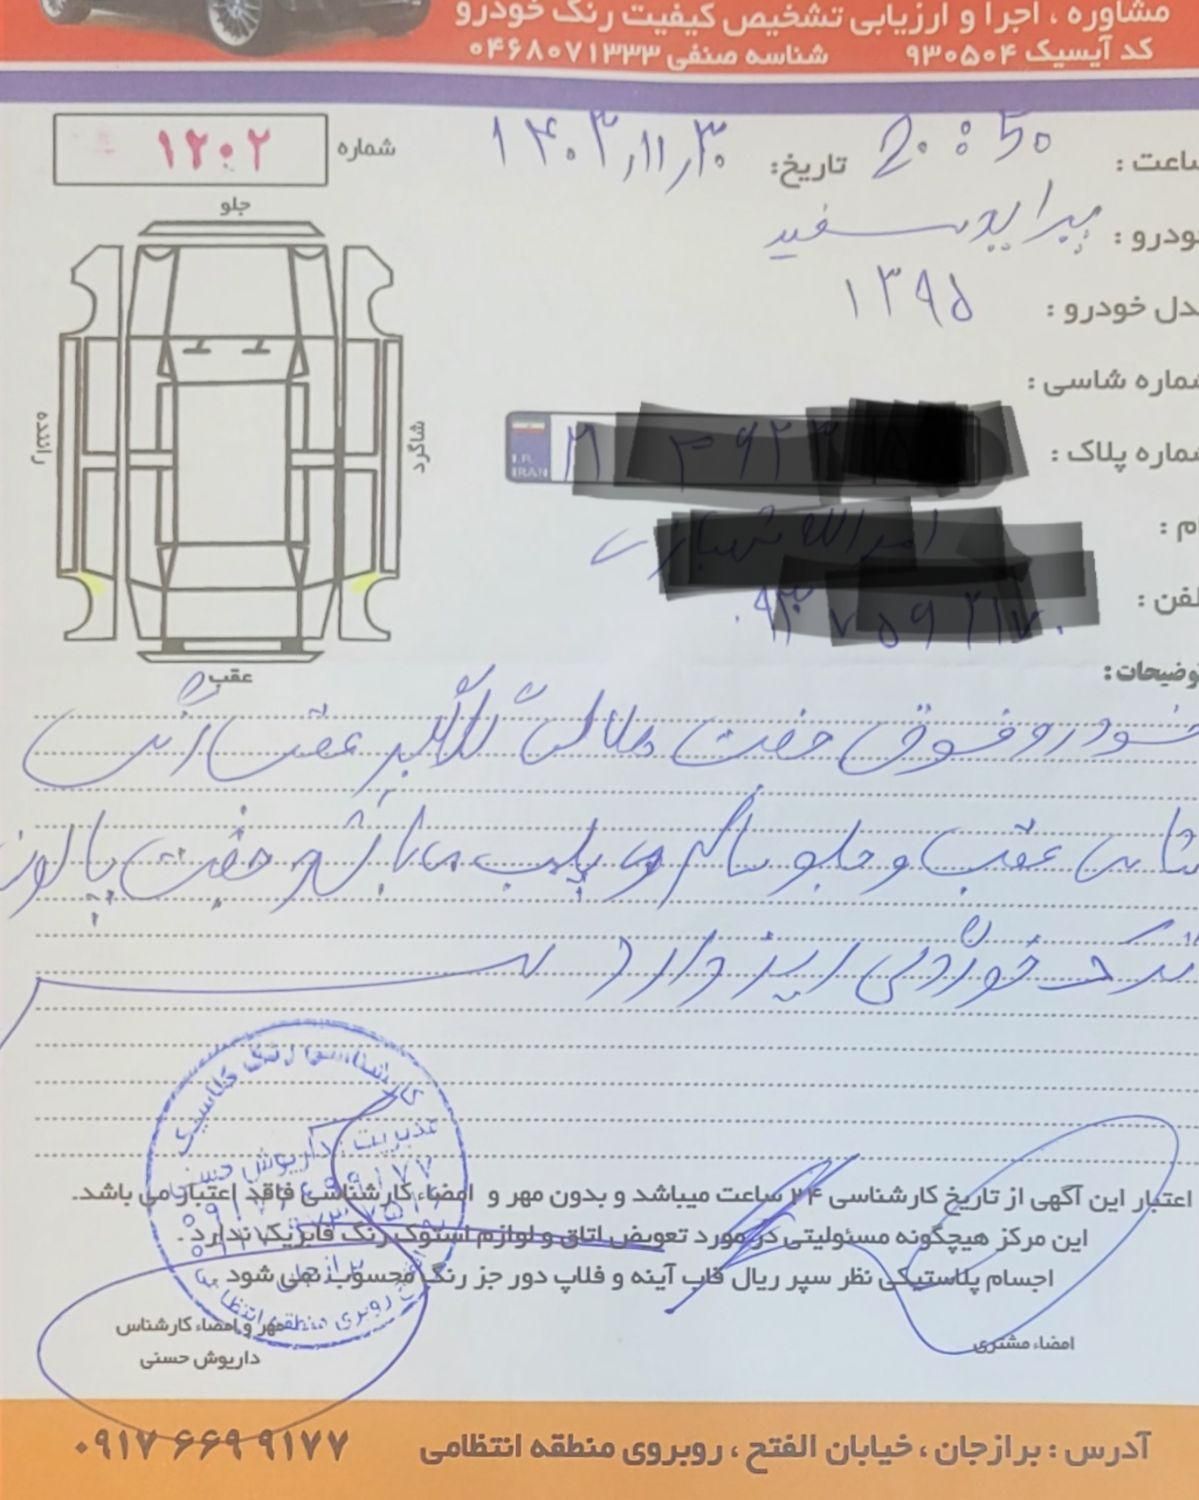 مشاوره ، اجرا و ارزیابی تشخیص کیفیت رنگ خودرو
کد آیسیک ۹۳۰۵۰۴ شناسه صنفی ۰۴۶۸۰۷۱۳۳۳
ساعت : 20:50 تاریخ: ۱۴۰۳,۱۱,۳۰
شماره ۱۲۰۲
خودرو : پراید سفید
مدل خودرو : ۱۳۹۵
شماره شاسی :
شماره پلاک :
I.R.
IRAN
نام :
تلفن :
جلو
راننده
شاگرد
عقب
توضیحات:
خودرو فوق جفت گلگیر عقب رنگ
شاسی عقب و جلو سالم و پلمپ میباشد و جفت پالونی
ترک خوردگی ریز دارد
کارشناسی رنگ کلاسیک
مدیریت : داریوش حسنی
برازجان
روبروی منطقه انتظامی
اعتبار این آگهی از تاریخ کارشناسی ۲۴ ساعت میباشد و بدون مهر و امضاء کارشناسی فاقد اعتبار می باشد.
این مرکز هیچگونه مسئولیتی در مورد تعویض اتاق و لوازم استوک رنگ فابریک ندارد .
اجسام پلاستیکی نظر سپر ریال قاب آینه و فلاپ دور جز رنگ محسوب نمی شود
امضاء مشتری
مهر و امضاء کارشناس
داریوش حسنی
آدرس : برازجان ، خیابان الفتح ، روبروی منطقه انتظامی ۰۹۱۷ ۶۶۹ ۹۱۷۷